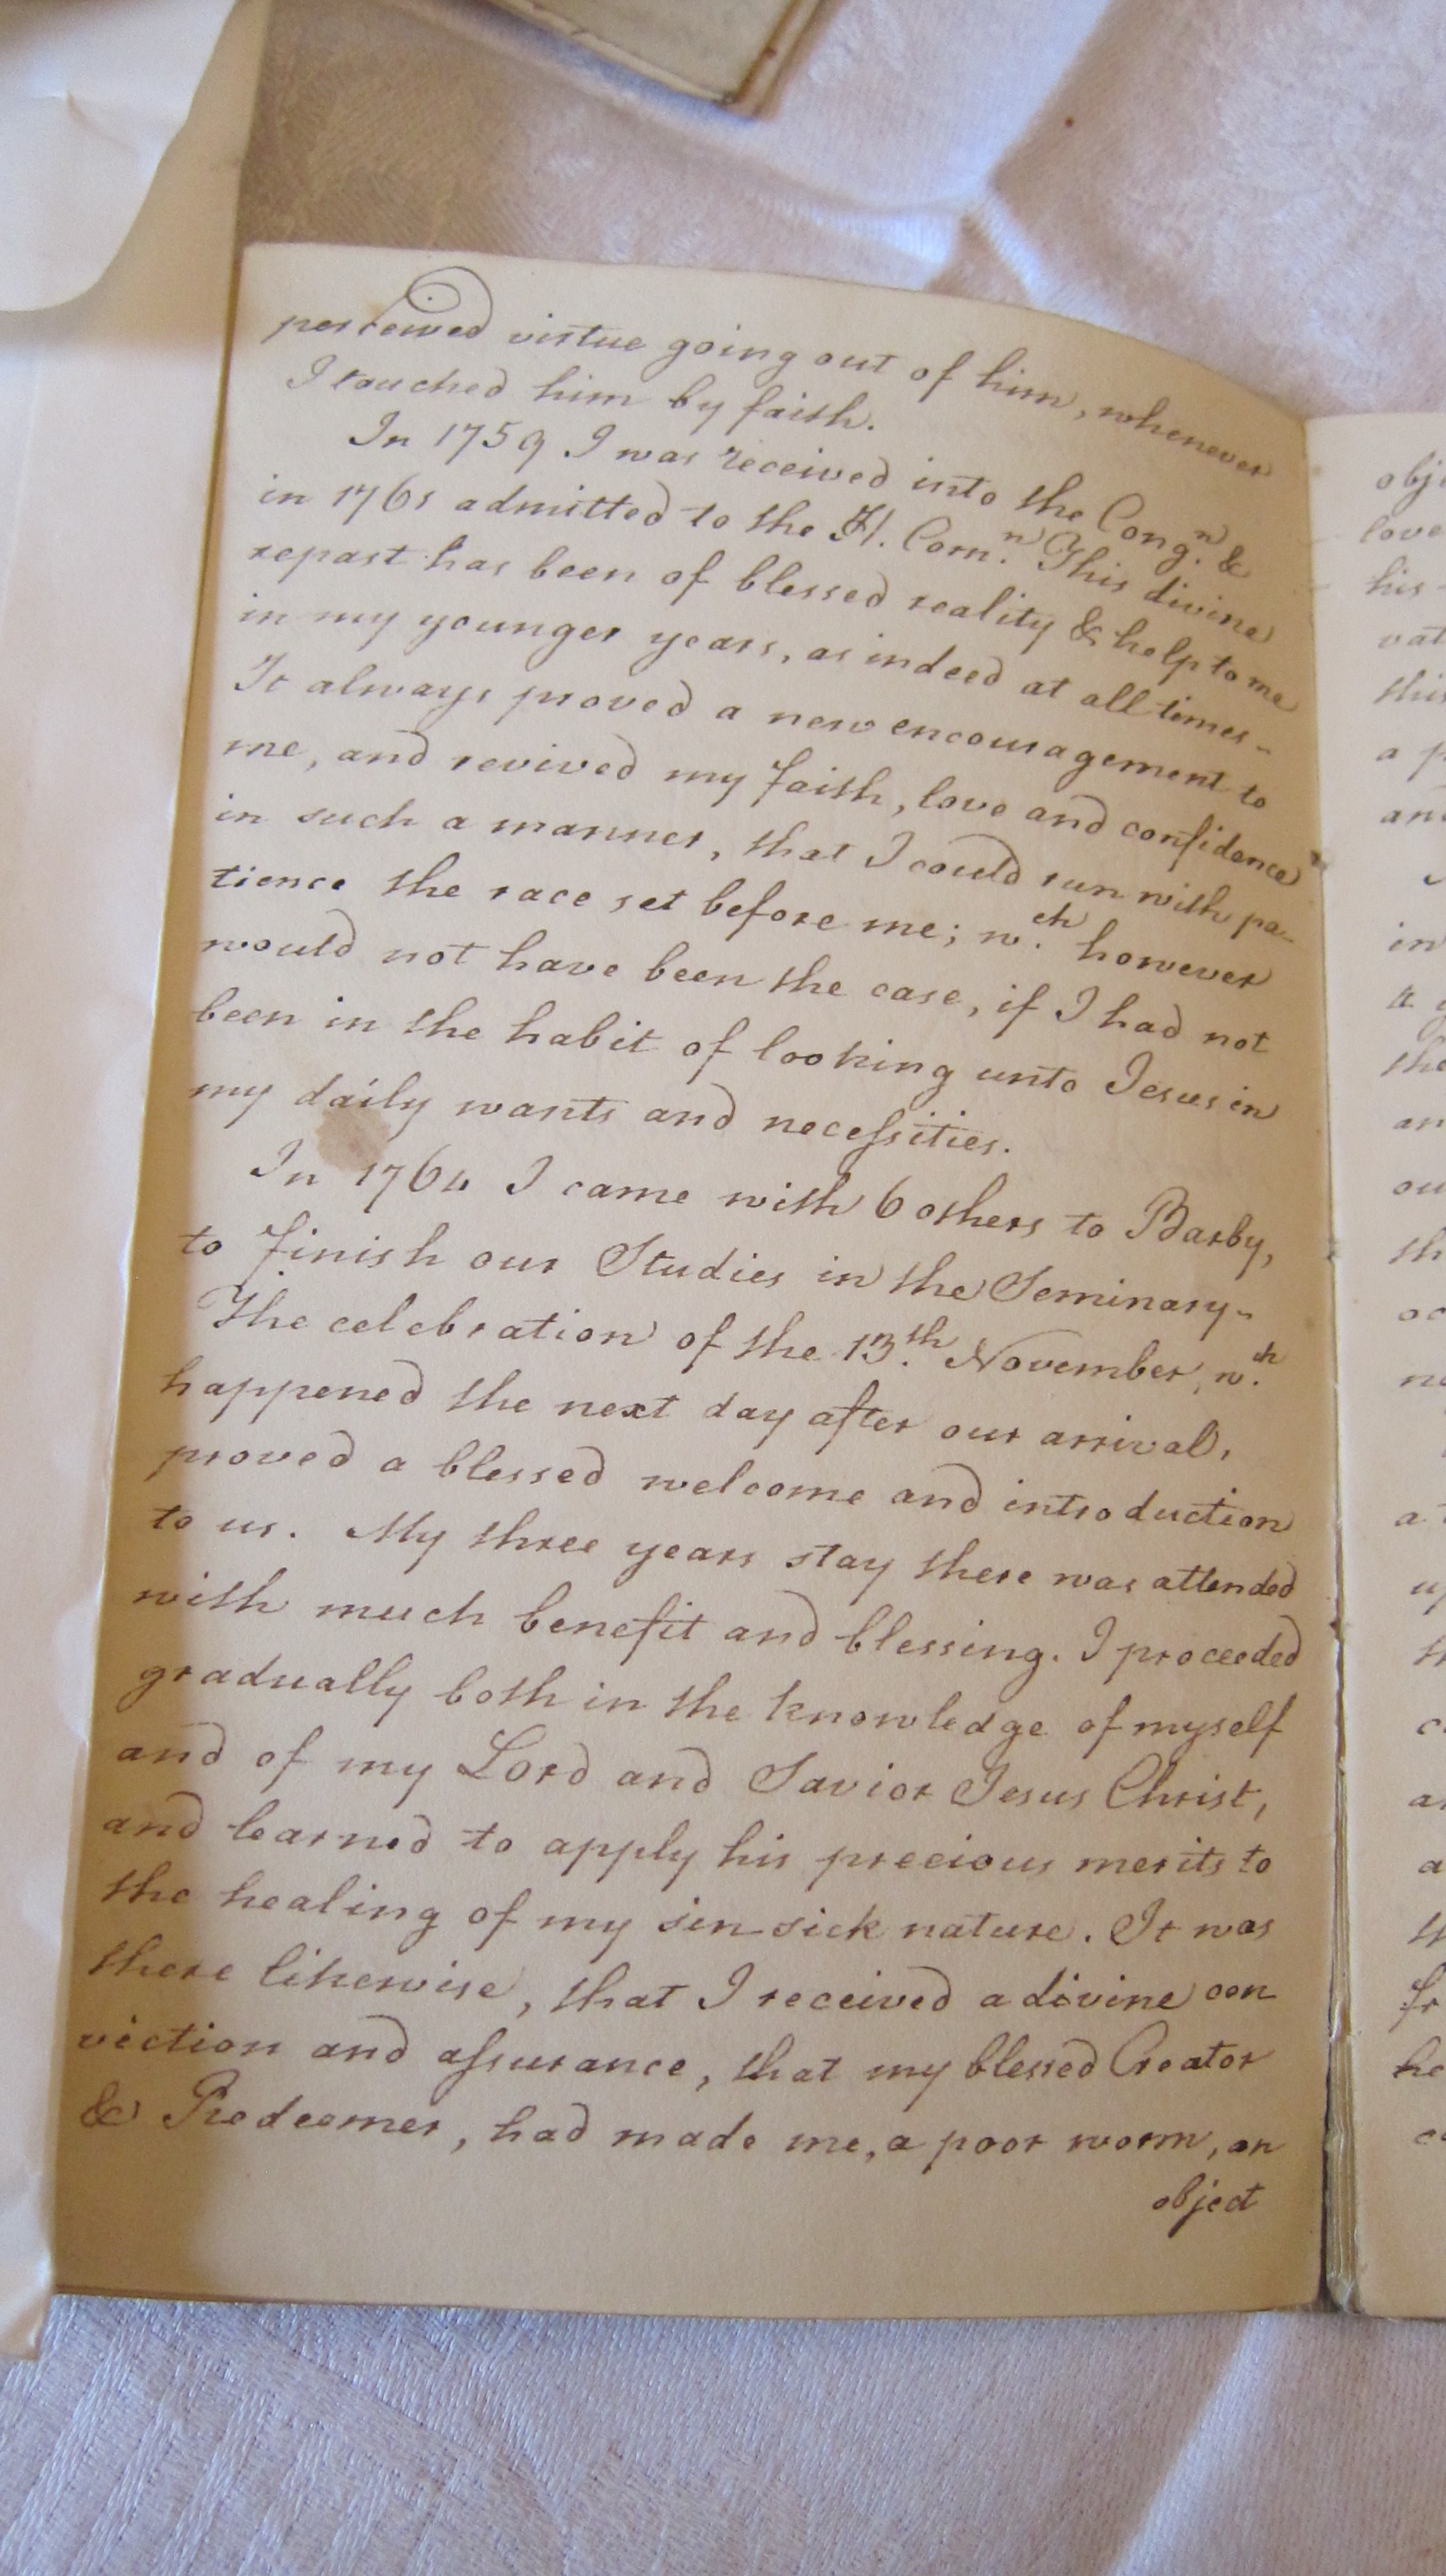 perceived virtue going out of him, whenever
I touched him by faith.
In 1759 I was received into the Congn. &
in 1761 admitted to the H. Comn. This divine
repast has been of blessed reality & help to me
in my younger years, as indeed at all times.
It always proved a new encouragement to
me, and revived my faith, love and confidence
in such a manner, that I could run with pa-
tience the race set before me; wch. however
would not have been the case, if I had not
been in the habit of looking unto Jesus in
my daily wants and necessities.
In 1764 I came with 6 others to Barby,
to finish our Studies in the Seminary.
The celebration of the 13th. November, wch.
happened the next day after our arrival,
proved a blessed welcome and introduction
to us. My three years stay there was attended
with much benefit and blessing. I proceeded
gradually both in the knowledge of myself
and of my Lord and Savior Jesus Christ,
and learned to apply his precious merits to
the healing of my sin-sick nature. It was
there likewise, that I received a divine con
viction and assurance, that my blessed Creator
& Redeemer, had made me, a poor worm, an
object